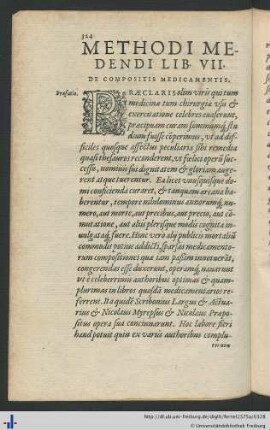 324
METHODI ME-
DENDI LIB. VII.
DE COMPOSITIS MEDICAMENTIS.
Præfatio.
PRÆCLARIS olim viris qui tum
medicinæ tum chirurgiæ vsu &
exercitatione celebres euaserunt,
præcipuam curam summumq́; stu
dium fuisse cōperimus, vt ad dif-
ficiles quosque affectus peculiaria sibi remedia
quasi thesauros reconderent, vt fœlici operū suc-
cessu, nominis sui dignitatem & gloriam auge-
rent atque tuerentur. Ea licet vnusquisque do-
mi conficienda curaret, & tamquam arcana ha-
berentur, tempore nihilominus aut
mero, aut morte, aut precibus, aut precio, aut cō-
mutatione, aut aliis plerisque modis cognita in-
uulgataq́; fuere. Hinc vero alij publicis mortaliū
commodis potius addicti, sparsas medicamento-
rum compositiones quæ iam passim innotuerāt,
congerendas esse duxerunt, operamq́; nauarunt
vt è celeberrimis authoribus optimas & quam-
plurimas in libros quosdā medicamentarios re-
ferrent. Ita quidē Scribonius Largus & Actua-
rius & Nicolaus Myrepsus & Nicolaus Præpo-
situs opera sua concinnarunt. Hoc labore fieri
haud potuit quin ex variis authoribus complu-
http://dl.ub.uni-freiburg.de/diglit/fernel1575a/0328
© Universitätsbibliothek Freiburg